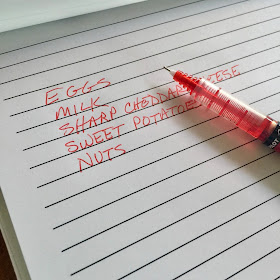 EGGS
MILK
SHARP CHEDDAR CHEESE
SWEET POTATOES
NUTS